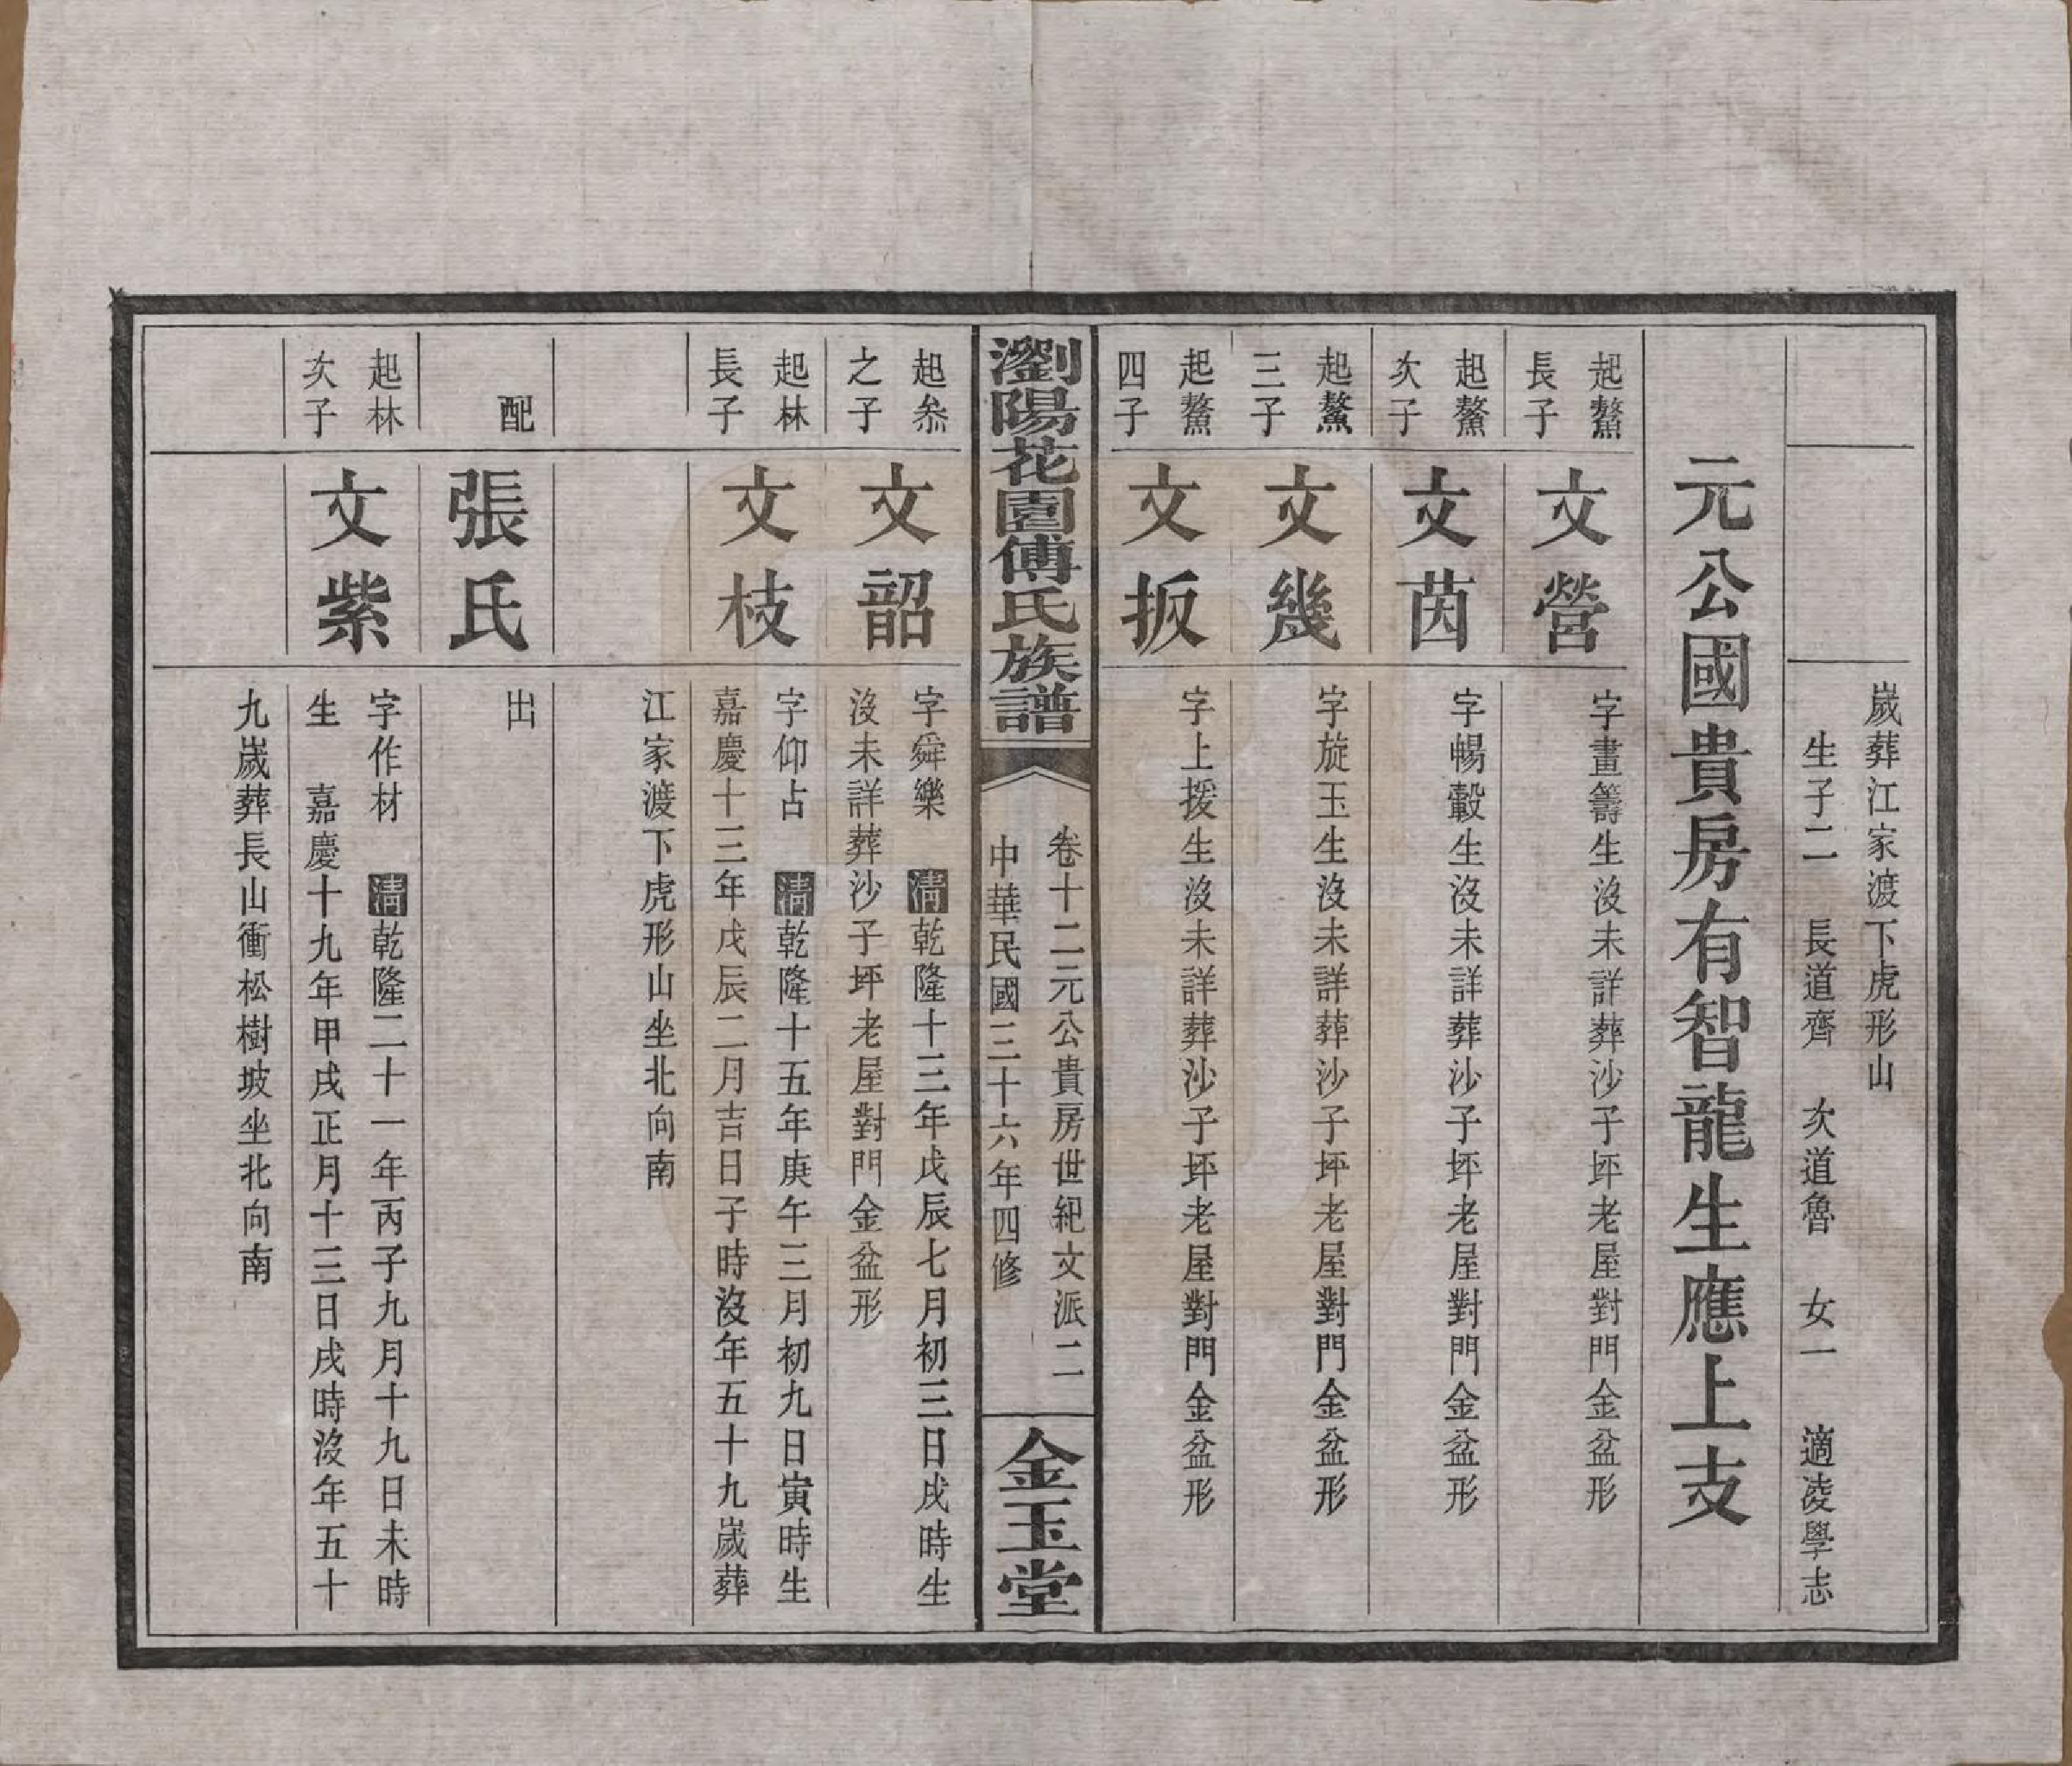 歲葬江家渡下虎形山
生子二　長道齊　次道魯　女一　適凌學志
元公國貴房有智龍生應上支
起鰲
長子
文營
字畫籌生沒未詳葬沙子坪老屋對門金盆形
起鰲
次子
文茵
字暢轂生沒未詳葬沙子坪老屋對門金盆形
起鰲
三子
文幾
字旋玉生沒未詳葬沙子坪老屋對門金盆形
起鰲
四子
文扳
字上援生沒未詳葬沙子坪老屋對門金盆形
瀏陽花園傅氏族譜
卷十二元公貴房世紀文派二
中華民國三十六年四修
金玉堂
起叅
之子
文韶
字舜樂　清乾隆十三年戊辰七月初三日戌時生
沒未詳葬沙子坪老屋對門金盆形
起林
長子
文枝
字仰占　清乾隆十五年庚午三月初九日寅時生
嘉慶十三年戊辰二月吉日子時沒年五十九歲葬
江家渡下虎形山坐北向南
配
張氏
出
起林
次子
文紫
字作材　清乾隆二十一年丙子九月十九日未時
生　嘉慶十九年甲戌正月十三日戌時沒年五十
九歲葬長山衝松樹坡坐北向南